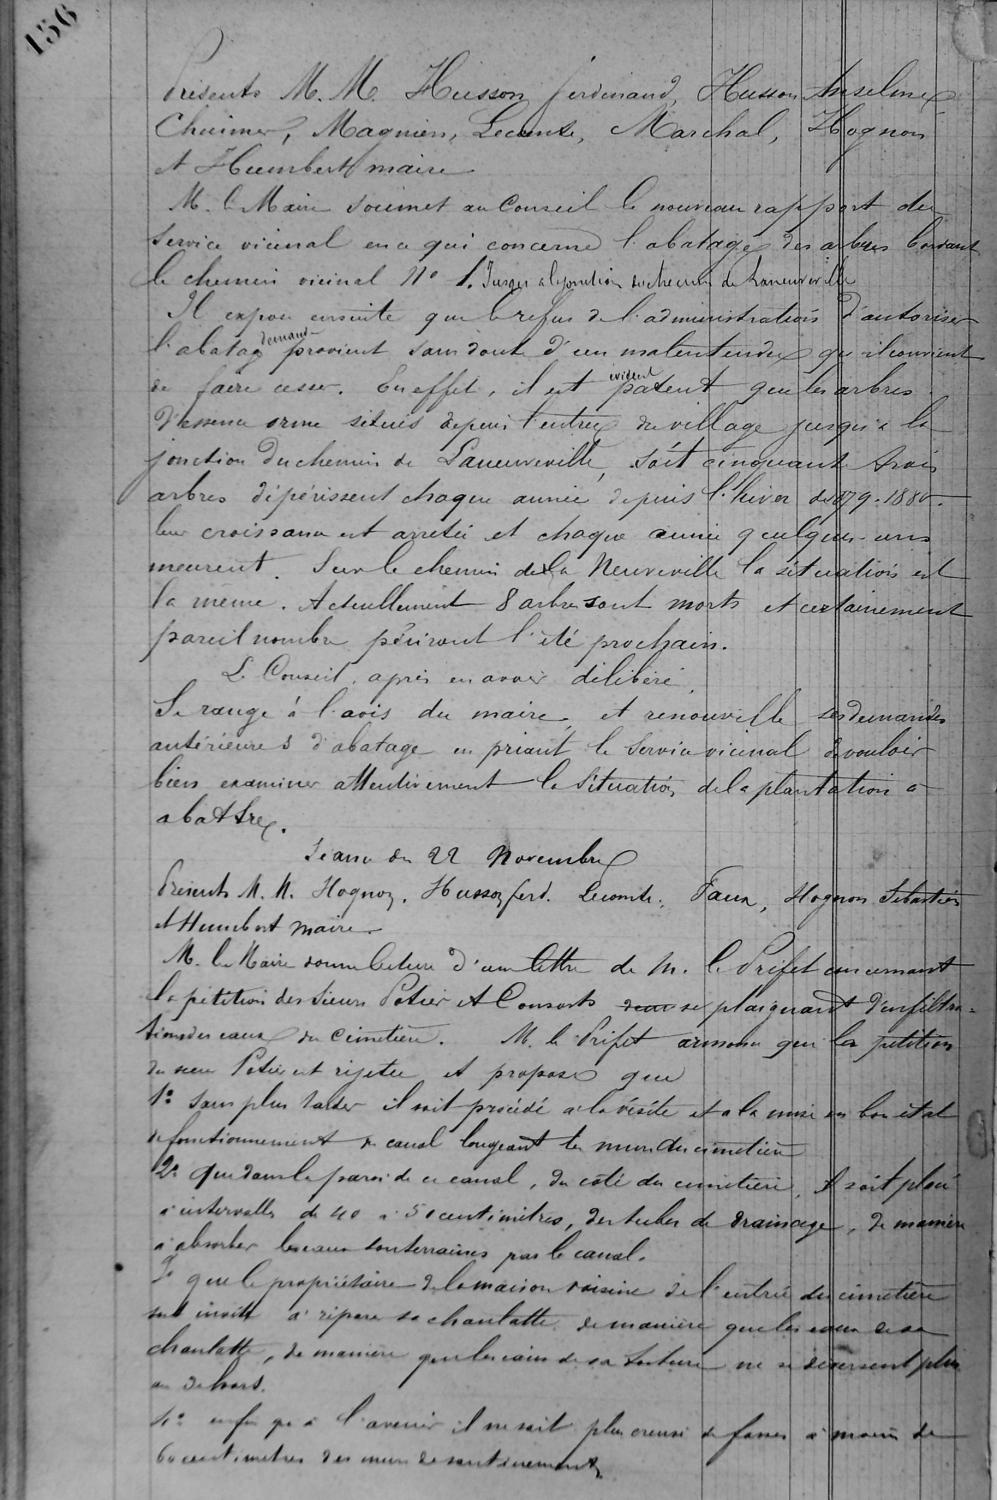 156
Présents M. M. Husson ferdinand, Husson Anselme
Chuimer, Magnien, Lecomte, Marchal, Hognon
et Humbert maire
M. le Maire soumet au Conseil le nouveau rapport du
service vicinal en ce qui concerne l'abatage des arbres bordant
le chemin vicinal No 1. Jusqu'à la jonction du chemin de Laneuveville
Il expose ensuite que le refus de l'administration d'autoriser
l'abatage demandé provient sans doute d'un malentendu qu'il convient
de faire cesser. En effet, il est évident patent que les arbres
d'essence orme situés depuis l'entrée du village jusqu'à la
jonction du chemin de Laneuveville, soit cinquante trois
arbres dépérissent chaque année, depuis l'hiver de 1879-1880.
leur croissance est arrêtée et chaque année quelques-uns
meurent. Sur le chemin de la Neuveville la situation est
la même. Actuellement 8 arbres sont morts et certainement
pareil nombre périront l'été prochain.
Le Conseil, après en avoir délibéré,
Se range à l'avis du maire, et renouvelle ses demandes
antérieures d'abatage en priant le Service vicinal de vouloir
bien examiner attentivement la situation de la plantation à
abattre.
Séance du 22 Novembre
Présents M. M. Hognon, Husson ferd. Lecomte, Faux, Hognon Sébastien
et Humbert maire
M. le Maire donne lecture d'une lettre de M. le Préfet concernant
la pétition des sieurs Potier et Consorts se plaignant d'infiltra-
tions des eaux du cimetière. M. le Préfet annonce que la pétition
du sieur Potier est rejetée et propose que
1o sans plus tarder il soit procédé à la visite et à la mise en bon état
de fonctionnement du canal longeant le mur du cimetière
2o Que dans la paroi de ce canal, du côté du cimetière, il soit placé
à intervalles de 40 à 50 centimètres, des tubes de drainage, de manière
à absorber les eaux souterraines par le canal.
3o que le propriétaire de la maison voisine de l'entrée du cimetière
soit invité à réparer sa chanlatte de manière que les eaux de sa
chanlatte, de manière que les eaux de sa toiture ne se déversent plus
au dehors.
4o enfin qu'à l'avenir il ne soit plus creusé de fosses à moins de
60 centimètres des murs de soutènement